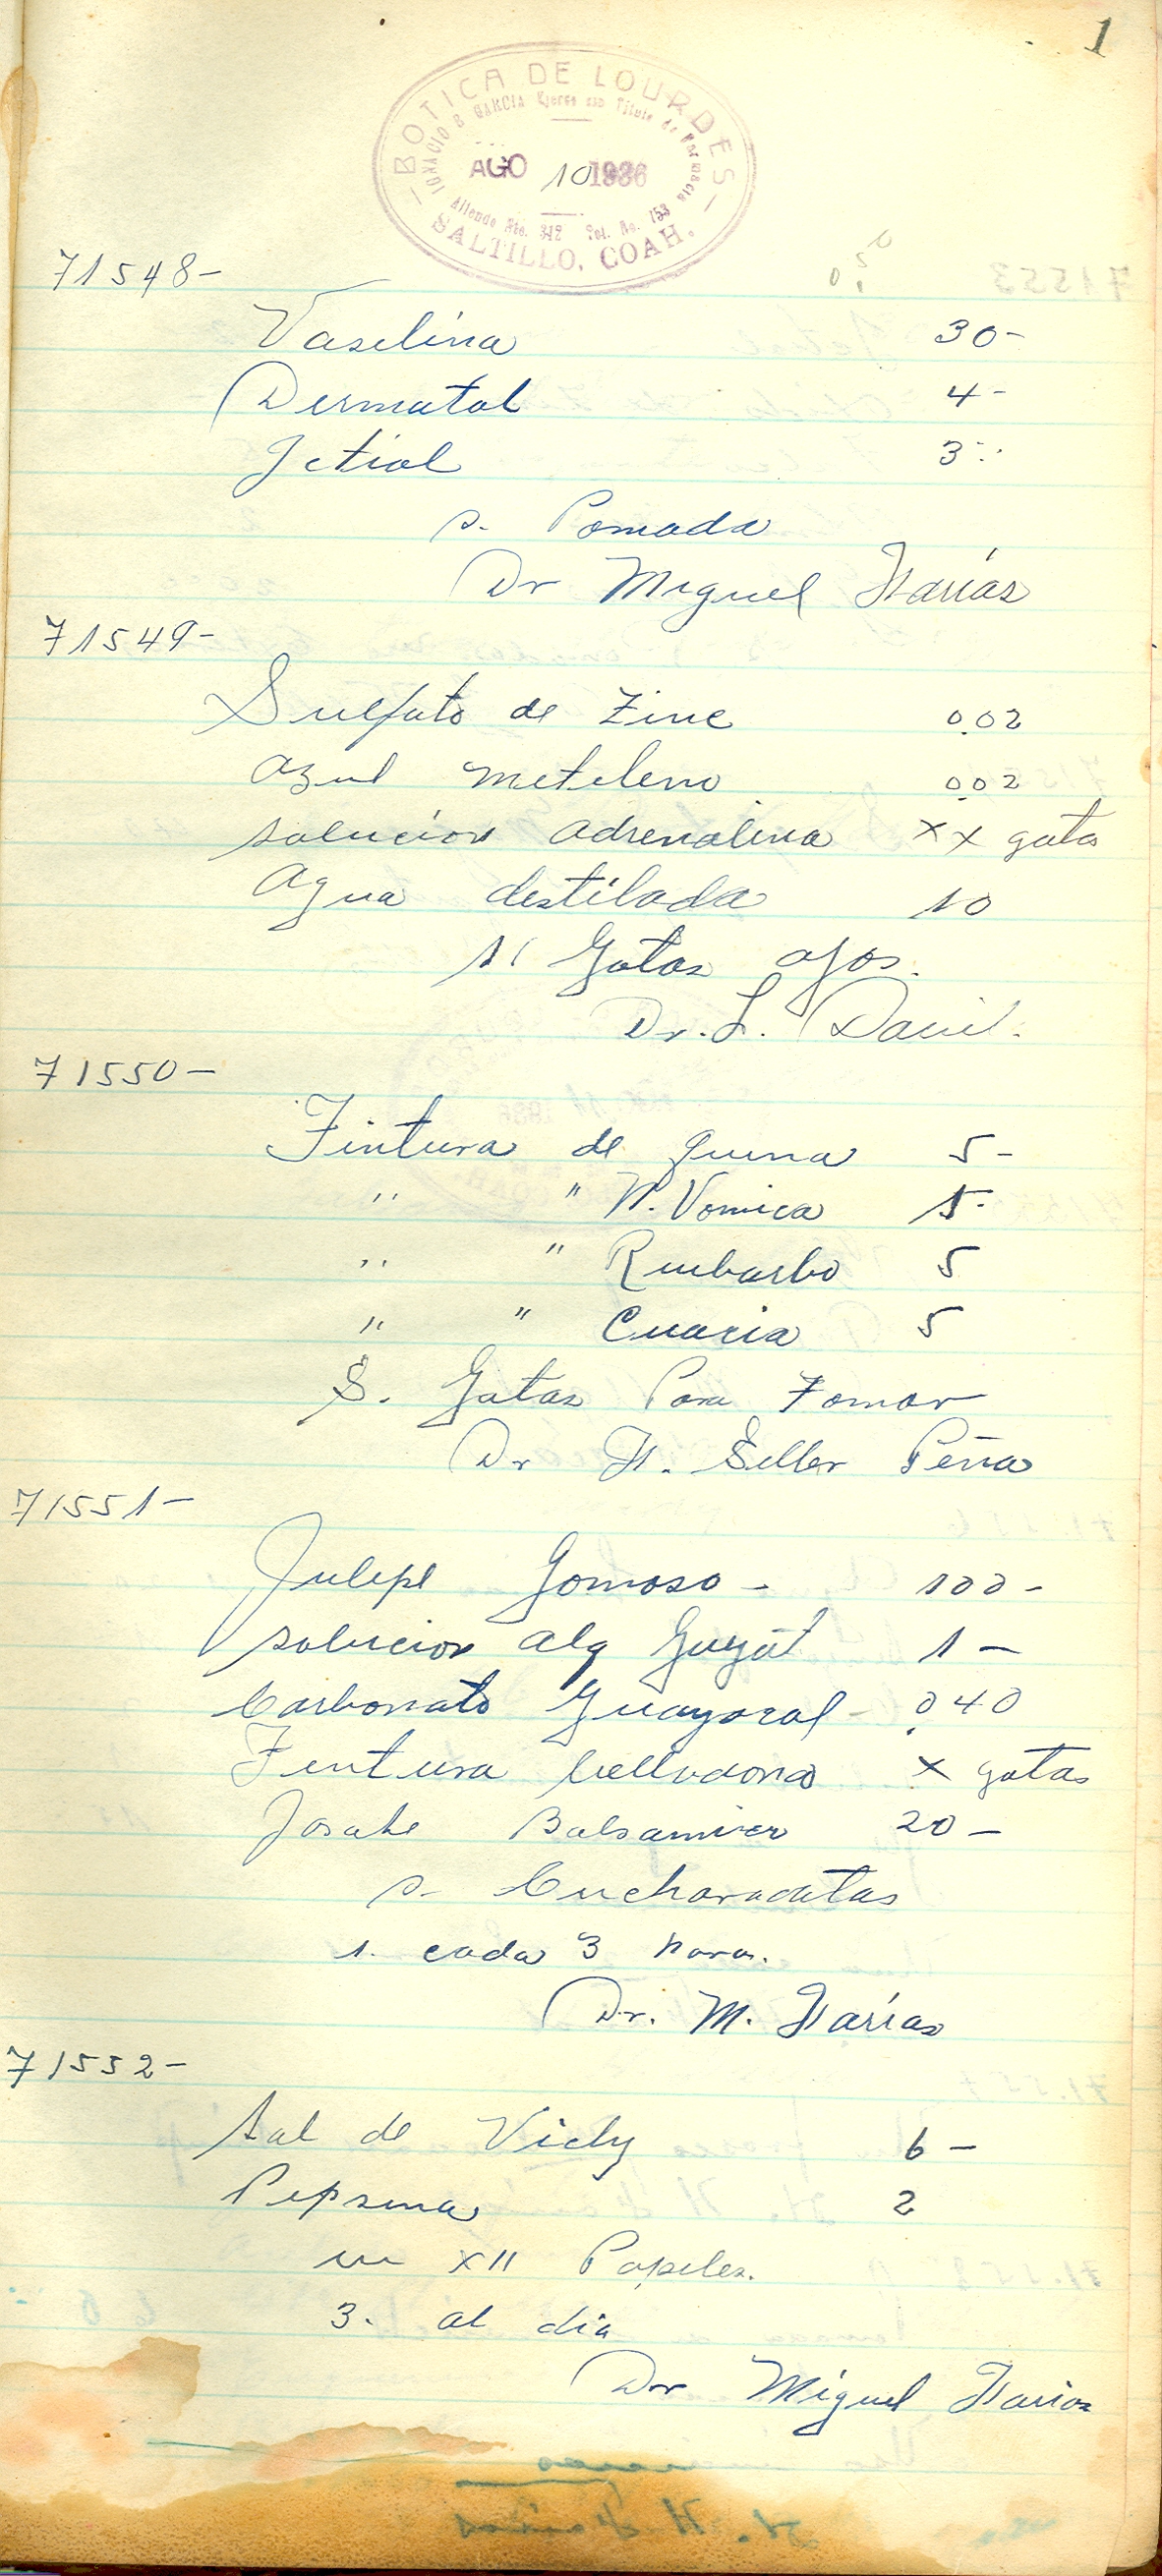 1
BOTICA DE LOURDES
IGNACIO B GARCIA Ejerce con Titulo de Farmacia
AGO 10 1936
Allende Nte. 312 Tel. No. 153
SALTILLO, COAH.
71548-
Vaselina 30-
Dermatol 4-
Ictiol 3-
s. Pomada
Dr Miguel Farías
71549-
Sulfato de Zinc 0.02
Azul metileno 0.02
solución adrenalina XX gotas
Agua destilada 10
Gotas ojos.
Dr. L. Davil.
71550-
Tintura de quina 5-
" " N. Vomica 5-
" " Ruibarbo 5
" " Cuacia 5
S. Gotas Para Tomar
Dr F. Seller Peña
71551-
Julepe Gomoso- 100-
solucion alq Guyot 1-
Carbonato Guayacol- 0.40
Tintura belladona X gotas
Jarabe Balsamico 20-
s- Cucharaditas
1. cada 3 horas.
Dr. M. Farías
71552-
Sal de Vichy 6-
Pepsina 2
en XII Papeles.
3. al dia
Dr Miguel Farias